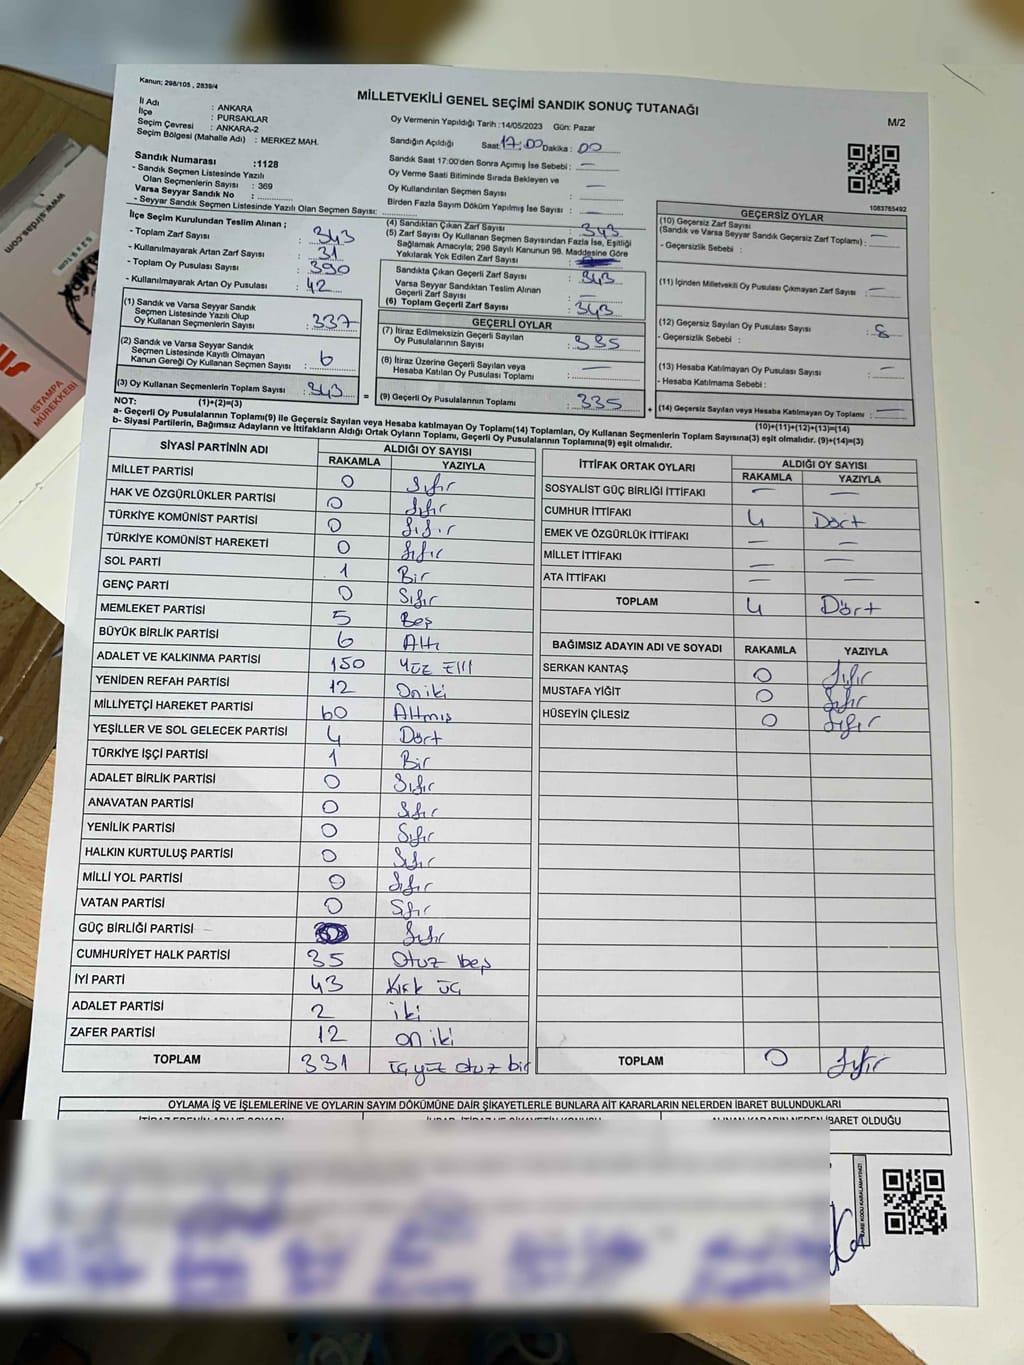 Kanun; 298/105 , 2839/4
MİLLETVEKİLİ GENEL SEÇİMİ SANDIK SONUÇ TUTANAĞI
M/2
İl Adı : ANKARA
İlçe : PURSAKLAR
Seçim Çevresi : ANKARA-2
Seçim Bölgesi (Mahalle Adı) : MERKEZ MAH.
Sandık Numarası :1128
- Sandık Seçmen Listesinde Yazılı
Olan Seçmenlerin Sayısı : 369
Varsa Seyyar Sandık No :
- Seyyar Sandık Seçmen Listesinde Yazılı Olan Seçmen Sayısı:
Oy Vermenin Yapıldığı Tarih :14/05/2023 Gün: Pazar
Sandığın Açıldığı Saat: 17:00 Dakika: 00
Sandık Saat 17:00'den Sonra Açımış İse Sebebi : —
Oy Verme Saati Bitiminde Sırada Bekleyen ve
Oy Kullandırılan Seçmen Sayısı : —
Birden Fazla Sayım Döküm Yapılmış İse Sayısı : —
1083765492
İlçe Seçim Kurulundan Teslim Alınan ;
- Toplam Zarf Sayısı : 343
- Kullanılmayarak Artan Zarf Sayısı : 31
- Toplam Oy Pusulası Sayısı : 390
- Kullanılmayarak Artan Oy Pusulası : 42
(1) Sandık ve Varsa Seyyar Sandık
Seçmen Listesinde Yazılı Olup
Oy Kullanan Seçmenlerin Sayısı : 337
(2) Sandık ve Varsa Seyyar Sandık
Seçmen Listesinde Kayıtlı Olmayan
Kanun Gereği Oy Kullanan Seçmen Sayısı : 6
(3) Oy Kullanan Seçmenlerin Toplam Sayısı : 343
(4) Sandıktan Çıkan Zarf Sayısı : 343
(5) Zarf Sayısı Oy Kullanan Seçmen Sayısından Fazla İse, Eşitliği
Sağlamak Amacıyla; 298 Sayılı Kanunun 98. Maddesine Göre
Yakılarak Yok Edilen Zarf Sayısı :
Sandıkta Çıkan Geçerli Zarf Sayısı : 343
Varsa Seyyar Sandıktan Teslim Alınan
Geçerli Zarf Sayısı : —
(6) Toplam Geçerli Zarf Sayısı : 343
GEÇERLİ OYLAR
(7) İtiraz Edilmeksizin Geçerli Sayılan
Oy Pusulalarının Sayısı : 335
(8) İtiraz Üzerine Geçerli Sayılan veya
Hesaba Katılan Oy Pusulası Toplamı : —
(9) Geçerli Oy Pusulalarının Toplamı : 335
GEÇERSİZ OYLAR
(10) Geçersiz Zarf Sayısı
(Sandık ve Varsa Seyyar Sandık Geçersiz Zarf Toplamı) : —
- Geçersizlik Sebebi :
(11) İçinden Milletvekili Oy Pusulası Çıkmayan Zarf Sayısı : —
(12) Geçersiz Sayılan Oy Pusulası Sayısı : 8
- Geçersizlik Sebebi :
(13) Hesaba Katılmayan Oy Pusulası Sayısı : —
- Hesaba Katılmama Sebebi :
(14) Geçersiz Sayılan veya Hesaba Katılmayan Oy Toplamı : —
NOT: (1)+(2)=(3)
(10)+(11)+(12)+(13)=(14)
a- Geçerli Oy Pusulalarının Toplamı(9) ile Geçersiz Sayılan veya Hesaba katılmayan Oy Toplamı(14) Toplamları, Oy Kullanan Seçmenlerin Toplam Sayısına(3) eşit olmalıdır. (9)+(14)=(3)
b- Siyasi Partilerin, Bağımsız Adayların ve İttifakların Aldığı Ortak Oyların Toplamı, Geçerli Oy Pusulalarının Toplamına(9) eşit olmalıdır.
SİYASİ PARTİNİN ADI ALDIĞI OY SAYISI
RAKAMLA YAZIYLA
MİLLET PARTİSİ 0 Sıfır
HAK VE ÖZGÜRLÜKLER PARTİSİ 0 Sıfır
TÜRKİYE KOMÜNİST PARTİSİ 0 Sıfır
TÜRKİYE KOMÜNİST HAREKETİ 0 Sıfır
SOL PARTİ 1 Bir
GENÇ PARTİ 0 Sıfır
MEMLEKET PARTİSİ 5 Beş
BÜYÜK BİRLİK PARTİSİ 6 Altı
ADALET VE KALKINMA PARTİSİ 150 Yüz Elli
YENİDEN REFAH PARTİSİ 12 On iki
MİLLİYETÇİ HAREKET PARTİSİ 60 Altmış
YEŞİLLER VE SOL GELECEK PARTİSİ 4 Dört
TÜRKİYE İŞÇİ PARTİSİ 1 Bir
ADALET BİRLİK PARTİSİ 0 Sıfır
ANAVATAN PARTİSİ 0 Sıfır
YENİLİK PARTİSİ 0 Sıfır
HALKIN KURTULUŞ PARTİSİ 0 Sıfır
MİLLİ YOL PARTİSİ 0 Sıfır
VATAN PARTİSİ 0 Sıfır
GÜÇ BİRLİĞİ PARTİSİ Sıfır
CUMHURİYET HALK PARTİSİ 35 Otuz beş
İYİ PARTİ 43 Kırk üç
ADALET PARTİSİ 2 iki
ZAFER PARTİSİ 12 on iki
TOPLAM 331 üçyüz otuz bir
İTTİFAK ORTAK OYLARI ALDIĞI OY SAYISI
RAKAMLA YAZIYLA
SOSYALİST GÜÇ BİRLİĞİ İTTİFAKI — —
CUMHUR İTTİFAKI 4 Dört
EMEK VE ÖZGÜRLÜK İTTİFAKI — —
MİLLET İTTİFAKI — —
ATA İTTİFAKI — —
TOPLAM 4 Dört
BAĞIMSIZ ADAYIN ADI VE SOYADI RAKAMLA YAZIYLA
SERKAN KANTAŞ 0 Sıfır
MUSTAFA YİĞİT 0 Sıfır
HÜSEYİN ÇİLESİZ 0 Sıfır
TOPLAM 0 Sıfır
OYLAMA İŞ VE İŞLEMLERİNE VE OYLARIN SAYIM DÖKÜMÜNE DAİR ŞİKAYETLERLE BUNLARA AİT KARARLARIN NELERDEN İBARET BULUNDUKLARI
İBARET OLDUĞU
ISTAMPA
MÜREKKEBİ